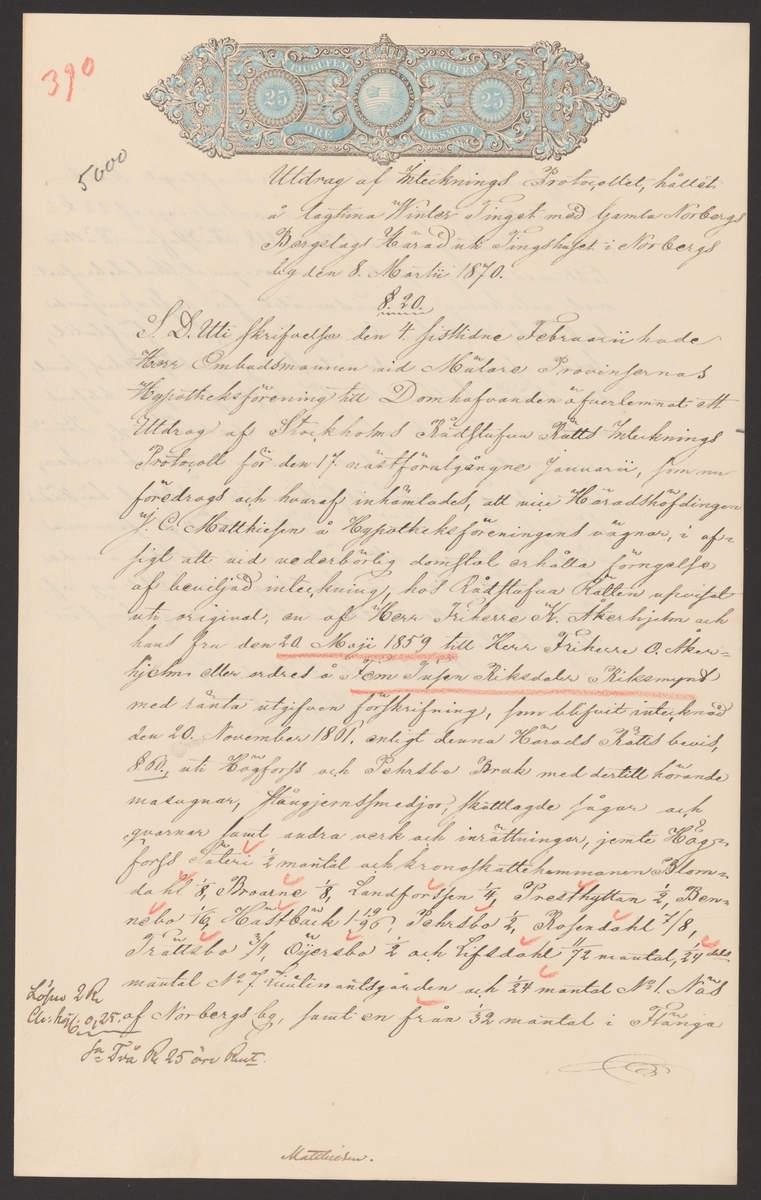 390
5000
TJUGUFEM TJUGUFEM
25 25
ÖRE RIKSMYNT
Utdrag af Intecknings Protocollet, hållet
å lagtima Winter Tinget med Gamla Norbergs
Bergslags Härad uti Tingshuset i Norbergs
by den 8. Martii 1870.
§. 20.
S. D. Uti skrifvelse den 4. sistlidne Februarii hade
Herr Ombudsmannen vid Mälare Provinsernas
Hypotheksförening till Domhafvanden öfverlemnat ett
Utdrag af Stockholms Rådstufvu Rätts Intecknings
Protocoll för den 17. nästförutgångne Januarii, som nu
föredrogs och hvaraf inhämtades, att vice Häradshöfdingen
J. C. Matthiesen å Hypotheksföreningens vägnar, i af-
sigt att vid vederbörlig domstol erhålla förnyelse
af beviljad inteckning, hos Rådstufvu Rätten uppvisat
uti original, en af Herr Friherre K. Åkerhjelm och
hans fru den 20 Maji 1859 till Herr Friherre O. Åker-
hjelm eller ordres å Fem Tusen Riksdaler Riksmynt
med ränta utgifven förskrifning, som blifvit intecknad
den 20. November 1861. enligt denna Härads Rätts bevis,
§ 60., uti Högforss och Pehrsbo Bruk med dertill hörande
masugnar, stångjernssmedjor, skattlagde sågar och
qvarnar samt andra verk och inrättningar, jemte Hög-
forss Säteri 1/2 mantal och kronoskattehemmanen Blom-
dahl 1/8, Broarne 1/8, Landforssen 1/4, Presthyttan 1/2, Ben-
nebo 1/16, Hästbäck 1 19/96, Pehrsbo 1/2, Rosendahl 7/8,
Trättsbo 3/4, Öijersbo 1/2 och Lifsdahl 11/72 mantal, 1/24 dels
mantal No 7 Lieutinantsgården och 1/24 mantal No 1. Näs
af Norbergs by, samt en från 1/32 mantal i Flänga
Lösen 2 R
Ch: 0,25.
Sa Två R 25 öre Rmt.
Matthiesen.